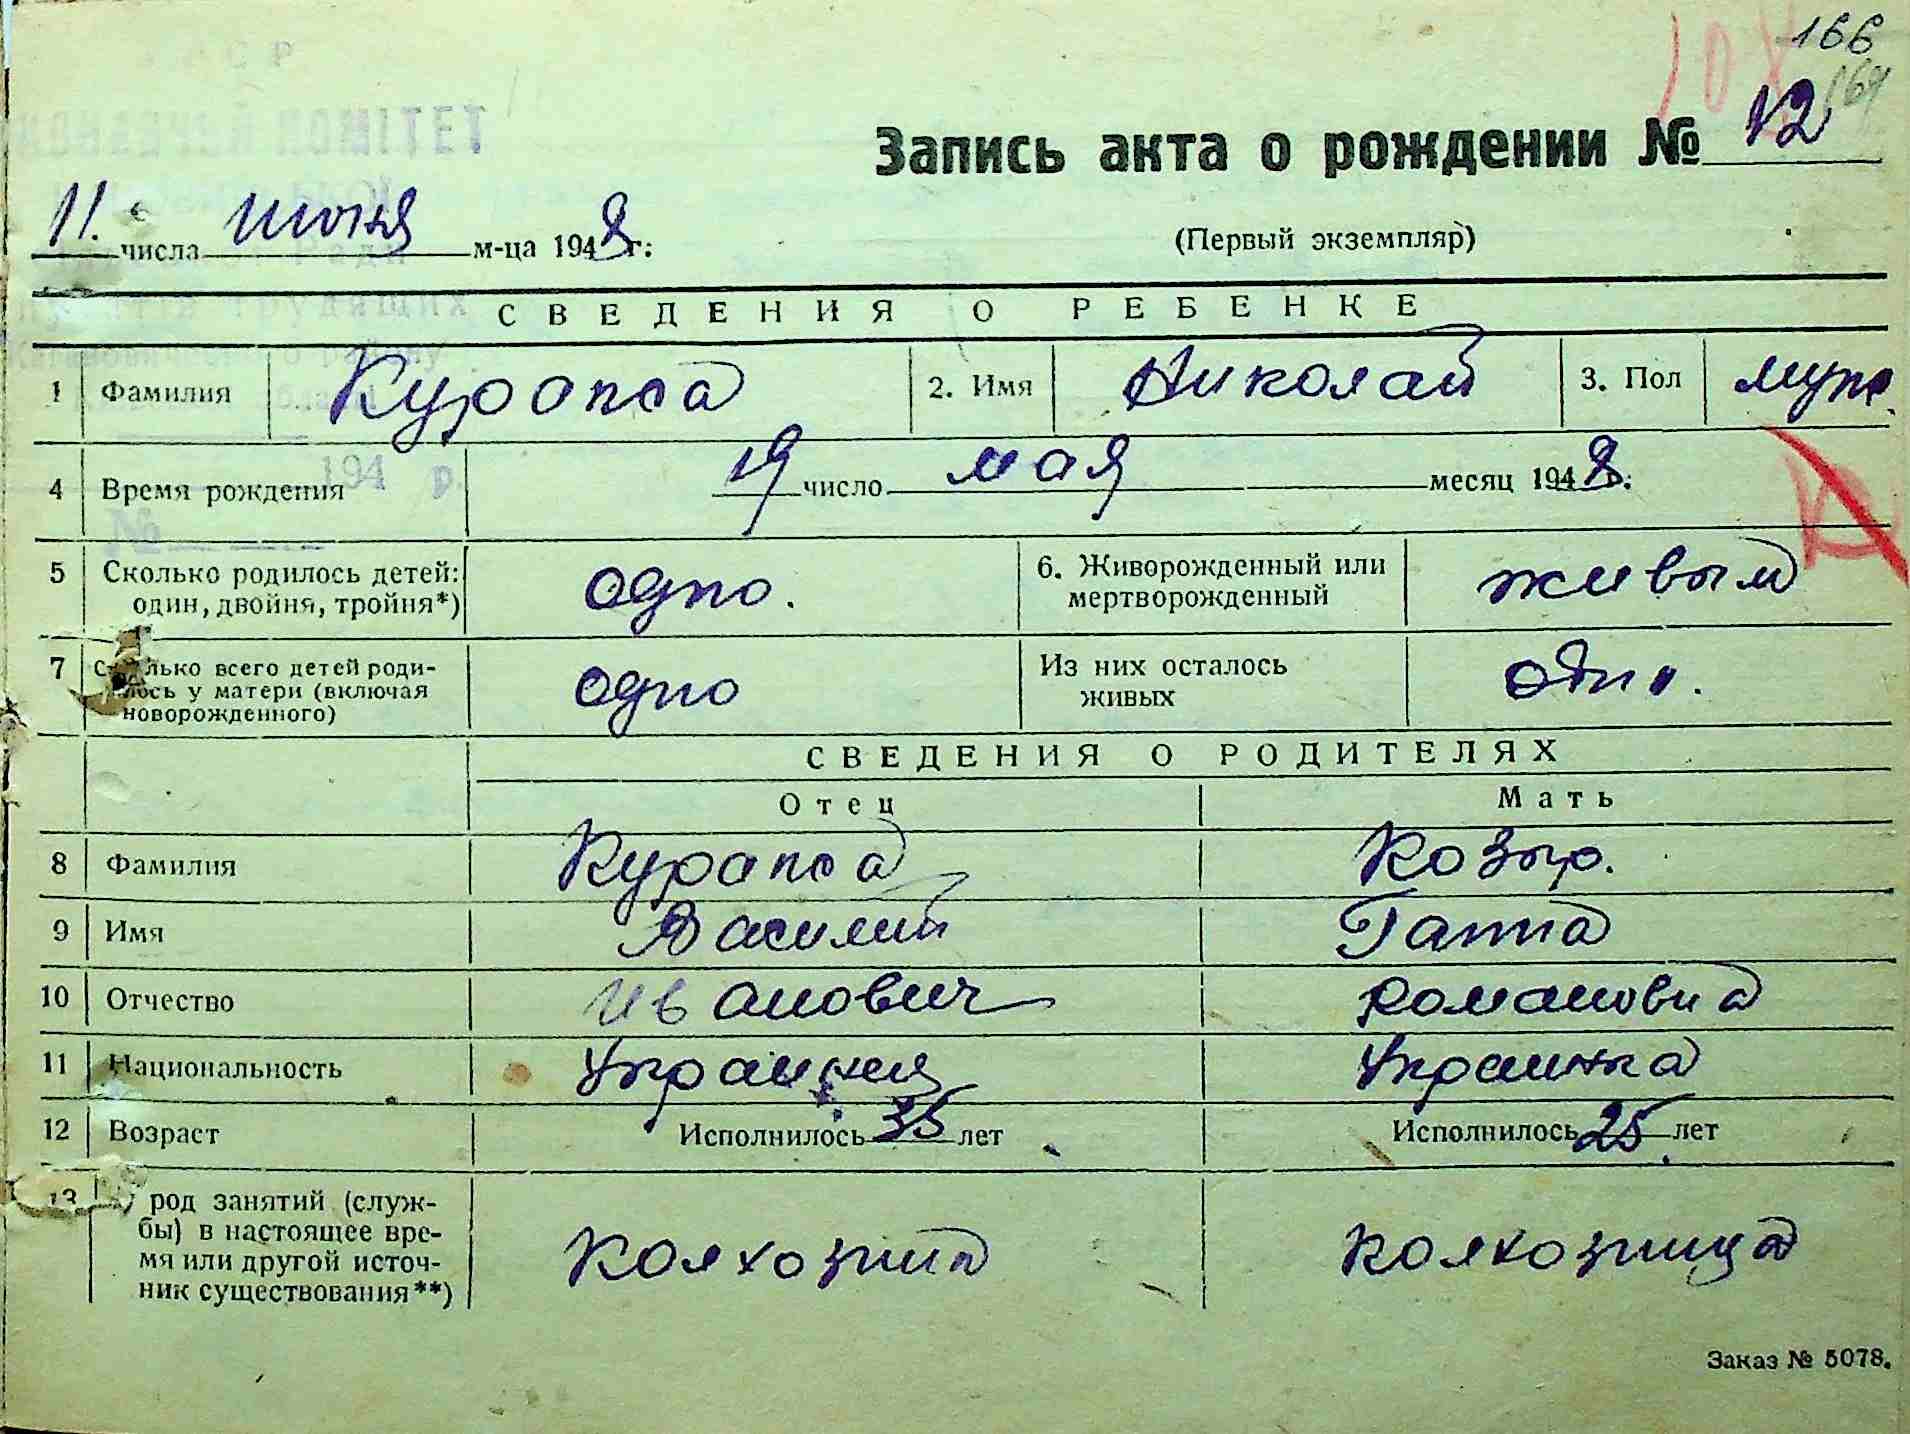 166
169
Запись акта о рождении № 12
11. числа июня м-ца 1948 г:
(Первый экземпляр)
СВЕДЕНИЯ О РЕБЕНКЕ
1 Фамилия Курапса 2. Имя Николай 3. Пол муж.
4 Время рождения 19 число мая месяц 1948 г:
5 Сколько родилось детей: один, двойня, тройня*) одно. 6. Живорожденный или мертворожденный живым
7 Сколько всего детей родилось у матери (включая новорожденного) одно Из них осталось живых одно.
СВЕДЕНИЯ О РОДИТЕЛЯХ
Отец Мать
8 Фамилия Курапса Козыр.
9 Имя Василий Ганна
10 Отчество Иванович Романовна
11 Национальность Украинец Украинка
12 Возраст Исполнилось 35 лет Исполнилось 25 лет
13 род занятий (служ-
бы) в настоящее вре-
мя или другой источ-
ник существования**) Колхозник колхозница
Заказ № 5078.